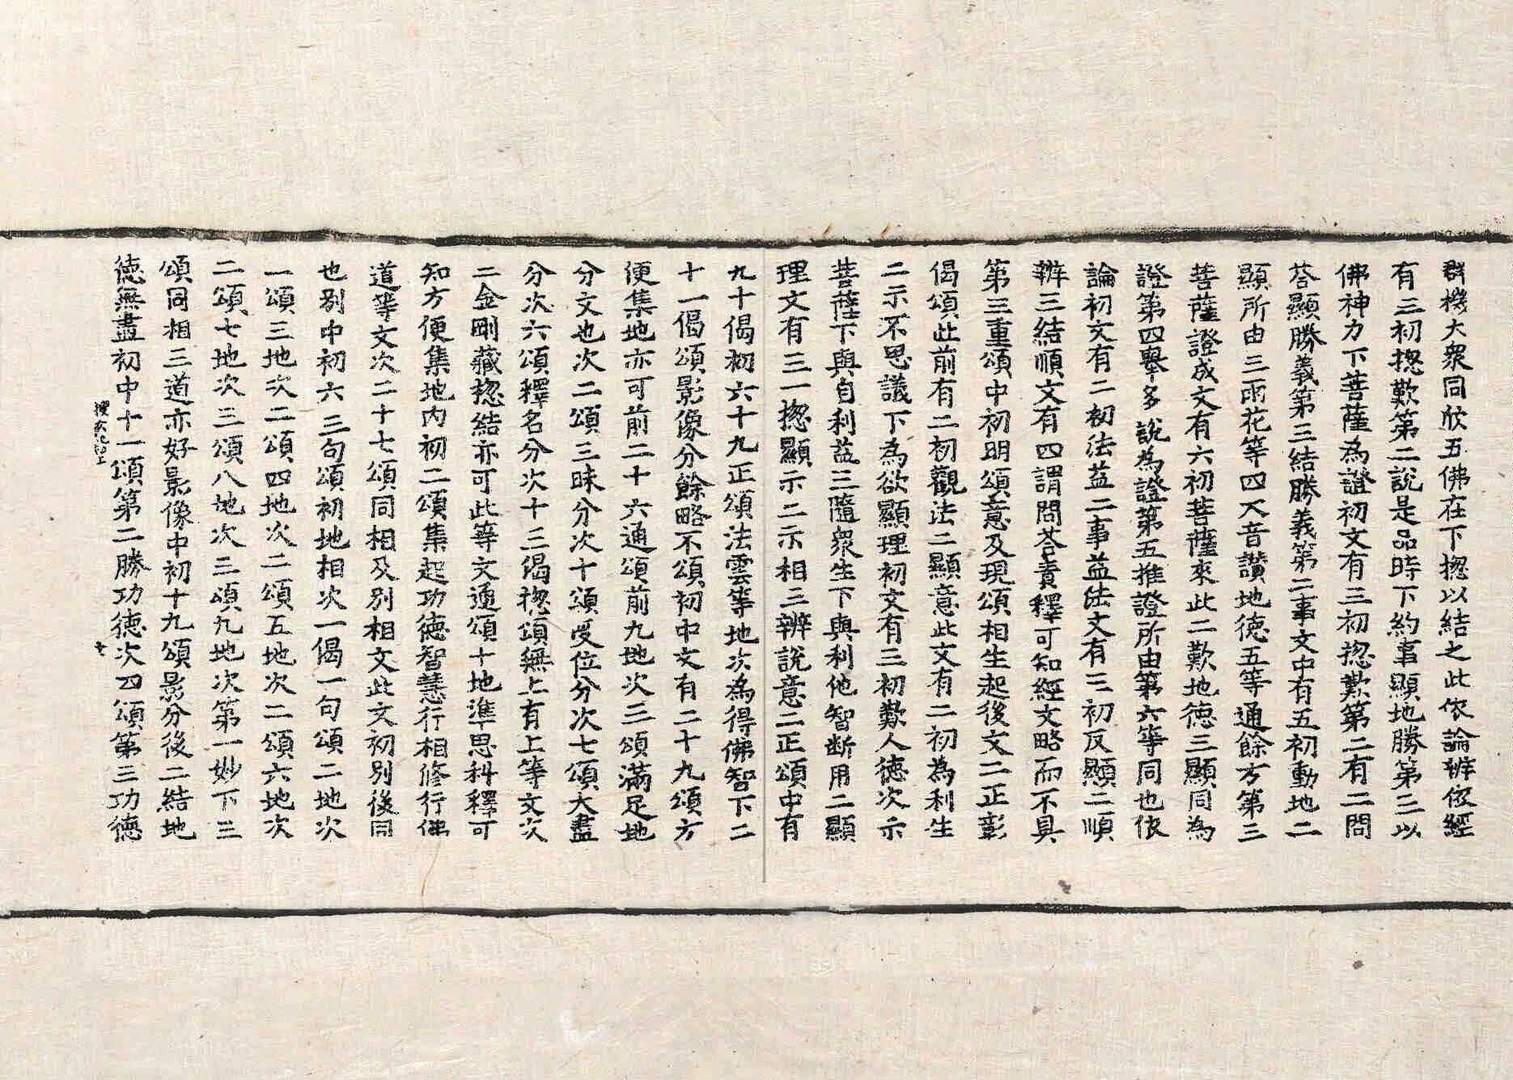 群機大衆同欣五佛在下揔以結之此依論辨依經
有三初揔歎第二說是品時下約事顯地勝第三以
佛神力下菩薩為證初文有三初揔歎第二有二問
荅顯勝義第三結勝義第二事文中有五初動地二
顯所由三雨花等四天音讃地德五等通餘方第三
菩薩證成文有六初菩薩來此二歎地德三顯同為
證第四舉多說為證第五推證所由第六等同也依
論初文有二初法益二事益法文有三初反顯二順
辨三結順文有四謂問荅責釋可知經文略而不具
第三重頌中初明頌意及現頌相生起後文二正彰
偈頌此前有二初觀法二顯意此文有二初為利生
二示不思議下為欲顯理初文有三初歎人德次示
菩薩下與自利益三隨衆生下與利他智断用二顯
理文有三一揔顯示二示相三辨說意二正頌中有
九十偈初六十九正頌法雲等地次為得佛智下二
十一偈頌影像分餘略不頌初中文有二十九頌方
便集地亦可前二十六通頌前九地次三頌滿足地
分文也次二頌三昧分次十頌受位分次七頌大盡
分次六頌釋名分次十三偈揔頌無上有上等文次
二金剛藏揔結亦可此等文通頌十地準思科釋可
知方便集地内初二頌集起功德智慧行相修行佛
道等文次二十七頌同相及別相文此文初別後同
也別中初六三句頌初地相次一偈一句頌二地次
一頌三地次二頌四地次二頌五地次二頌六地次
二頌七地次三頌八地次三頌九地次第一妙下三
頌同相三道亦好影像中初十九頌影分後二結地
德無盡初中十一頌第二勝功德次四頌第三功德